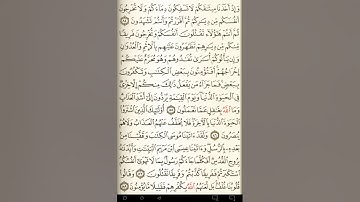 وَإِذْ أَخَذْنَا مِيثَٰقَكُمْ لَا تَسْفِكُونَ دِمَآءَكُمْ وَلَا تُخْرِجُونَ
أَنفُسَكُم مِّن دِيَٰرِكُمْ ثُمَّ أَقْرَرْتُمْ وَأَنتُمْ تَشْهَدُونَ
ثُمَّ أَنتُمْ هَٰٓؤُلَآءِ تَقْتُلُونَ أَنفُسَكُمْ وَتُخْرِجُونَ فَرِيقًا
مِّنكُم مِّن دِيَٰرِهِمْ تَظَٰهَرُونَ عَلَيْهِم بِٱلْإِثْمِ وَٱلْعُدْوَٰنِ
وَإِن يَأْتُوكُمْ أُسَٰرَىٰ تُفَٰدُوهُمْ وَهُوَ مُحَرَّمٌ عَلَيْكُمْ
إِخْرَاجُهُمْ أَفَتُؤْمِنُونَ بِبَعْضِ ٱلْكِتَٰبِ وَتَكْفُرُونَ
بِبَعْضٍ فَمَا جَزَآءُ مَن يَفْعَلُ ذَٰلِكَ مِنكُمْ إِلَّا خِزْىٌ
فِى ٱلْحَيَوٰةِ ٱلدُّنْيَا وَيَوْمَ ٱلْقِيَٰمَةِ يُرَدُّونَ إِلَىٰٓ أَشَدِّ ٱلْعَذَابِ
وَمَا ٱللَّهُ بِغَٰفِلٍ عَمَّا تَعْمَلُونَ أُو۟لَٰٓئِكَ ٱلَّذِينَ ٱشْتَرَوُا۟
ٱلْحَيَوٰةَ ٱلدُّنْيَا بِٱلْءَاخِرَةِ فَلَا يُخَفَّفُ عَنْهُمُ ٱلْعَذَابُ وَلَا هُمْ
يُنصَرُونَ وَلَقَدْ ءَاتَيْنَا مُوسَى ٱلْكِتَٰبَ وَقَفَّيْنَا مِنۢ
بَعْدِهِۦ بِٱلرُّسُلِ وَءَاتَيْنَا عِيسَى ٱبْنَ مَرْيَمَ ٱلْبَيِّنَٰتِ وَأَيَّدْنَٰهُ
بِرُوحِ ٱلْقُدُسِ أَفَكُلَّمَا جَآءَكُمْ رَسُولٌۢ بِمَا لَا تَهْوَىٰٓ أَنفُسُكُمُ
ٱسْتَكْبَرْتُمْ فَفَرِيقًا كَذَّبْتُمْ وَفَرِيقًا تَقْتُلُونَ وَقَالُوا۟
قُلُوبُنَا غُلْفٌۢ بَل لَّعَنَهُمُ ٱللَّهُ بِكُفْرِهِمْ فَقَلِيلًا مَّا يُؤْمِنُونَ